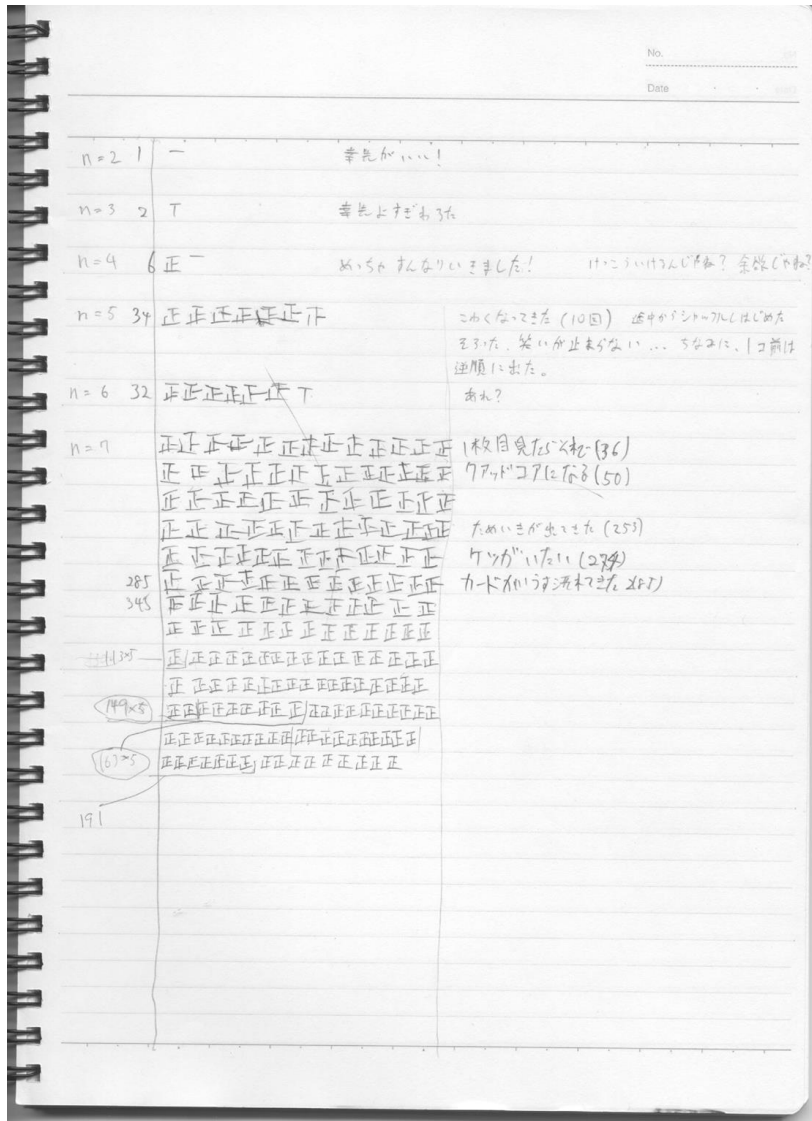 No.
Date
n=2 1 一 幸先がいい!
n=3 2 T 幸先よすぎわろた
n=4 6 正一 めっちゃすんなりいきました! けっこういけるんじゃね? 余裕じゃね?
n=5 34 正正正正正正下 こわくなってきた (10回) 途中からシャッフルしはじめた
そろった、笑いが止まらない... ちなみに、1コ前は
逆順に出た。
n=6 32 正正正正正正T あれ?
n=7 正正正正正正正正正正正正 1枚目見たらそれで(36)
正正正正正正正正正正正正 クアッドコアになる(50)
正正正正正正正正正正正正
正正正正正正正正正正正正 ためいきが出てきた (255)
正正正正正正正正正正正 ケツがいたい (274)
285 正正正正正正正正正正正正 カードがうす汚れてきた 285)
345 正正正正正正正正正正正正
正正正正正正正正正正正正
113×5 正正正正正正正正正正正正正正正
正正正正正正正正正正正正正正正
149×5 正正正正正正正正正正正正正正正正正
正正正正正正正正正正正正正正正正正正正
167×5 正正正正正正正正正正正正正正正
191